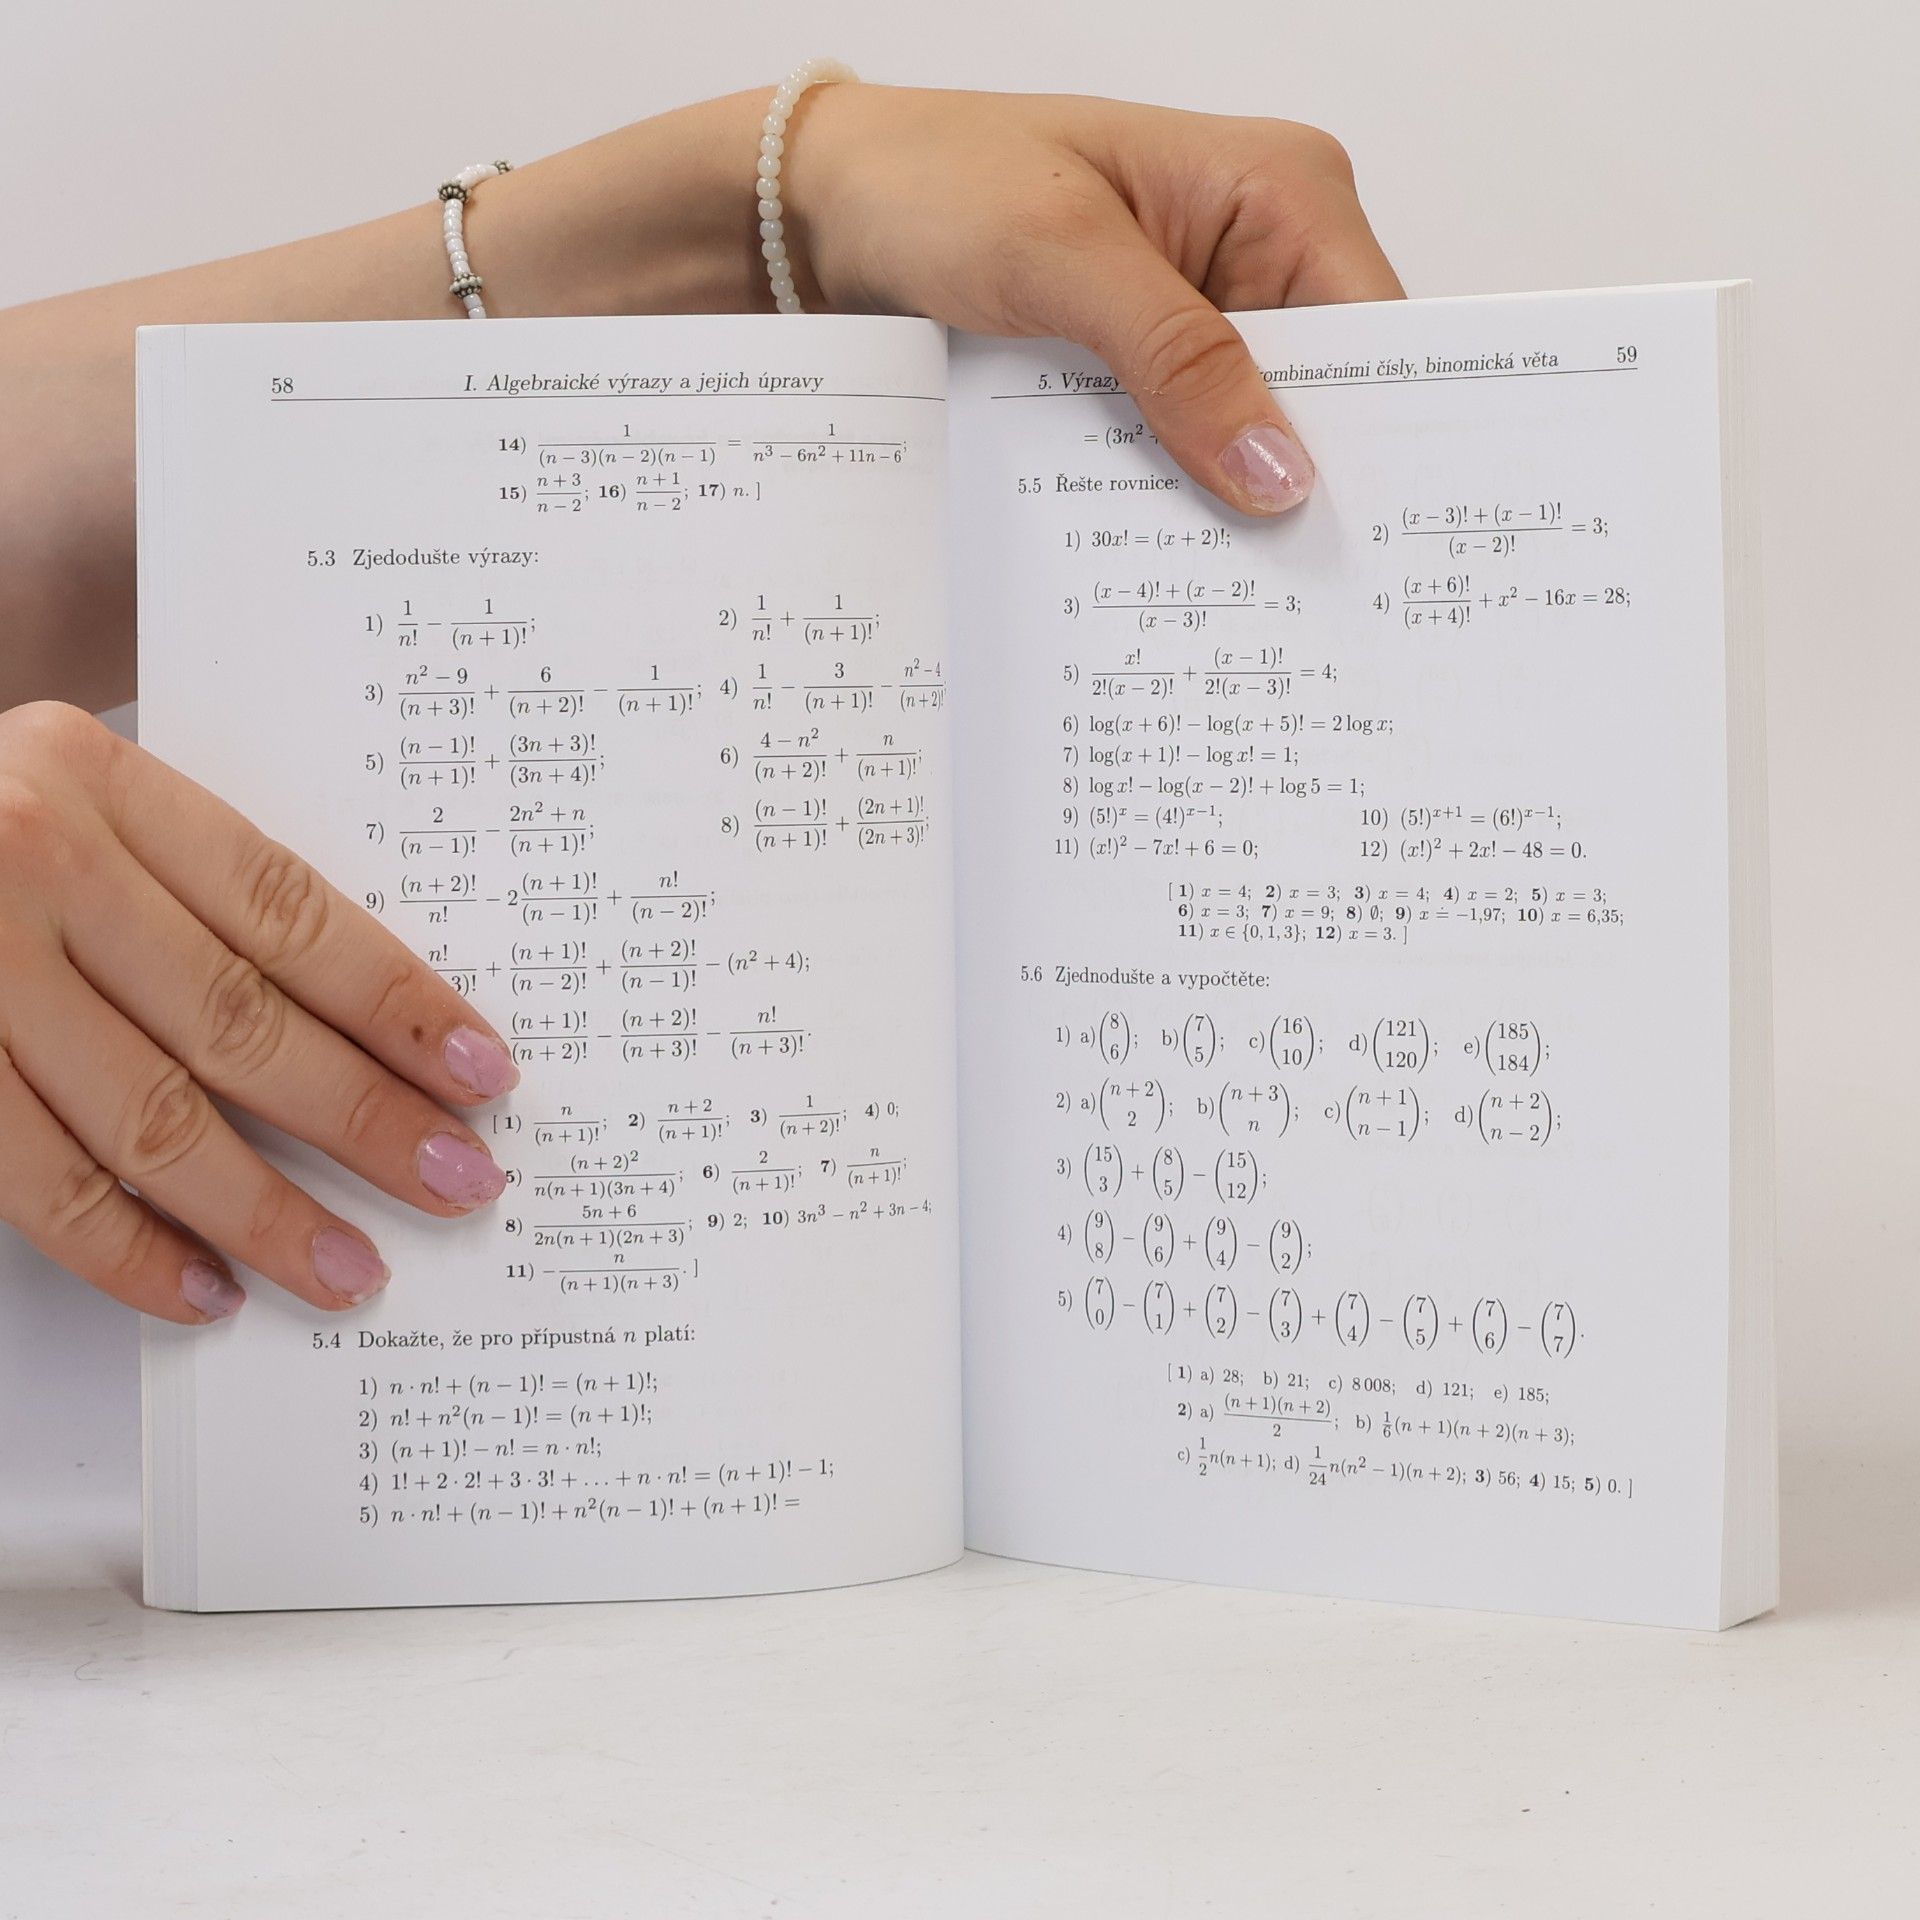 58 I. Algebraické výrazy a jejich úpravy
14) 1/((n − 3)(n − 2)(n − 1)) = 1/(n³ − 6n² + 11n − 6);
15) (n + 3)/(n − 2); 16) (n + 1)/(n − 2); 17) n. ]
5.3 Zjedodušte výrazy:
1) 1/n! − 1/(n + 1)!; 2) 1/n! + 1/(n + 1)!;
3) (n² − 9)/(n + 3)! + 6/(n + 2)! − 1/(n + 1)!; 4) 1/n! − 3/(n + 1)! − (n² − 4)/(n + 2)!
5) (n − 1)!/(n + 1)! + (3n + 3)!/(3n + 4)!; 6) (4 − n²)/(n + 2)! + n/(n + 1)!;
7) 2/(n − 1)! − (2n² + n)/(n + 1)!; 8) (n − 1)!/(n + 1)! + (2n + 1)!/(2n + 3)!;
9) (n + 2)!/n! − 2(n + 1)!/(n − 1)! + n!/(n − 2)!;
n!/3)! + (n + 1)!/(n − 2)! + (n + 2)!/(n − 1)! − (n² + 4);
(n + 1)!/(n + 2)! − (n + 2)!/(n + 3)! − n!/(n + 3)!.
[ 1) n/(n + 1)!; 2) (n + 2)/(n + 1)!; 3) 1/(n + 2)!; 4) 0;
5) (n + 2)²/(n(n + 1)(3n + 4)); 6) 2/(n + 1)!; 7) n/(n + 1)!;
8) (5n + 6)/(2n(n + 1)(2n + 3)); 9) 2; 10) 3n³ − n² + 3n − 4;
11) −n/((n + 1)(n + 3)). ]
5.4 Dokažte, že pro přípustná n platí:
1) n · n! + (n − 1)! = (n + 1)!;
2) n! + n²(n − 1)! = (n + 1)!;
3) (n + 1)! − n! = n · n!;
4) 1! + 2 · 2! + 3 · 3! + … + n · n! = (n + 1)! − 1;
5) n · n! + (n − 1)! + n²(n − 1)! + (n + 1)! =
5. Výrazy ombinačními čísly, binomická věta 59
= (3n²
5.5 Řešte rovnice:
1) 30x! = (x + 2)!; 2) ((x − 3)! + (x − 1)!)/(x − 2)! = 3;
3) ((x − 4)! + (x − 2)!)/(x − 3)! = 3; 4) (x + 6)!/(x + 4)! + x² − 16x = 28;
5) x!/(2!(x − 2)!) + (x − 1)!/(2!(x − 3)!) = 4;
6) log(x + 6)! − log(x + 5)! = 2 log x;
7) log(x + 1)! − log x! = 1;
8) log x! − log(x − 2)! + log 5 = 1;
9) (5!)ˣ = (4!)ˣ⁻¹; 10) (5!)ˣ⁺¹ = (6!)ˣ⁻¹;
11) (x!)² − 7x! + 6 = 0; 12) (x!)² + 2x! − 48 = 0.
[ 1) x = 4; 2) x = 3; 3) x = 4; 4) x = 2; 5) x = 3;
6) x = 3; 7) x = 9; 8) ∅; 9) x ≐ −1,97; 10) x = 6,35;
11) x ∈ {0, 1, 3}; 12) x = 3. ]
5.6 Zjednodušte a vypočtěte:
1) a) (8 6); b) (7 5); c) (16 10); d) (121 120); e) (185 184);
2) a) (n + 2 2); b) (n + 3 n); c) (n + 1 n − 1); d) (n + 2 n − 2);
3) (15 3) + (8 5) − (15 12);
4) (9 8) − (9 6) + (9 4) − (9 2);
5) (7 0) − (7 1) + (7 2) − (7 3) + (7 4) − (7 5) + (7 6) − (7 7).
[ 1) a) 28; b) 21; c) 8 008; d) 121; e) 185;
2) a) (n + 1)(n + 2)/2; b) 1/6(n + 1)(n + 2)(n + 3);
c) 1/2 n(n + 1); d) 1/24 n(n² − 1)(n + 2); 3) 56; 4) 15; 5) 0. ]